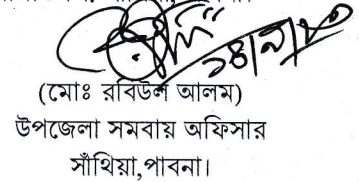 (মোঃ রবিউল আলম)
উপজেলা সমবায় অফিসার
সাঁথিয়া,পাবনা।